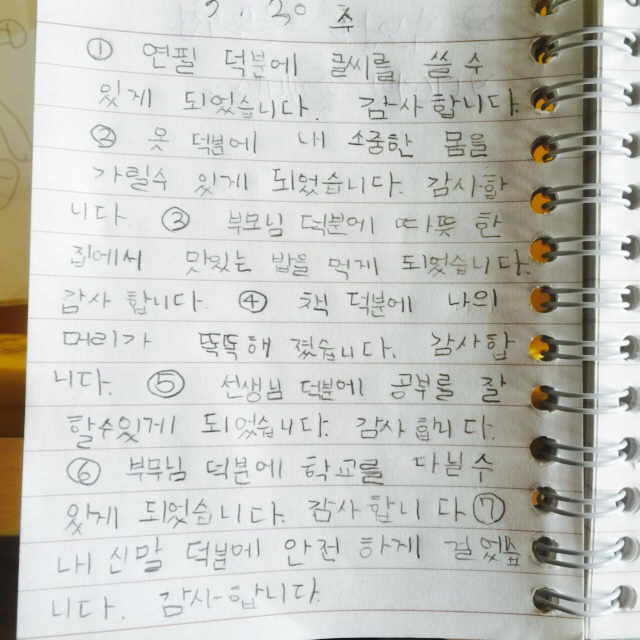 3. 20 주
① 연필 덕분에 글씨를 쓸 수
있게 되었습니다. 감사합니다
② 옷 덕분에 내 소중한 몸을
가릴수 있게 되었습니다. 감사합
니다. ③ 부모님 덕분에 따뜻 한
집에서 맛있는 밥을 먹게 되었습니다.
감사 합니다. ④ 책 덕분에 나의
머리가 똑똑해 졌습니다. 감사합
니다. ⑤ 선생님 덕분에 공부를 잘
할수있게 되었습니다. 감사 합니 다.
⑥ 부무님 덕분에 학교를 다닐 수
있게 되었습니다. 감사 합니 다 ⑦
내 신발 덕분에 안전 하게 걸었습
니다. 감사합니다